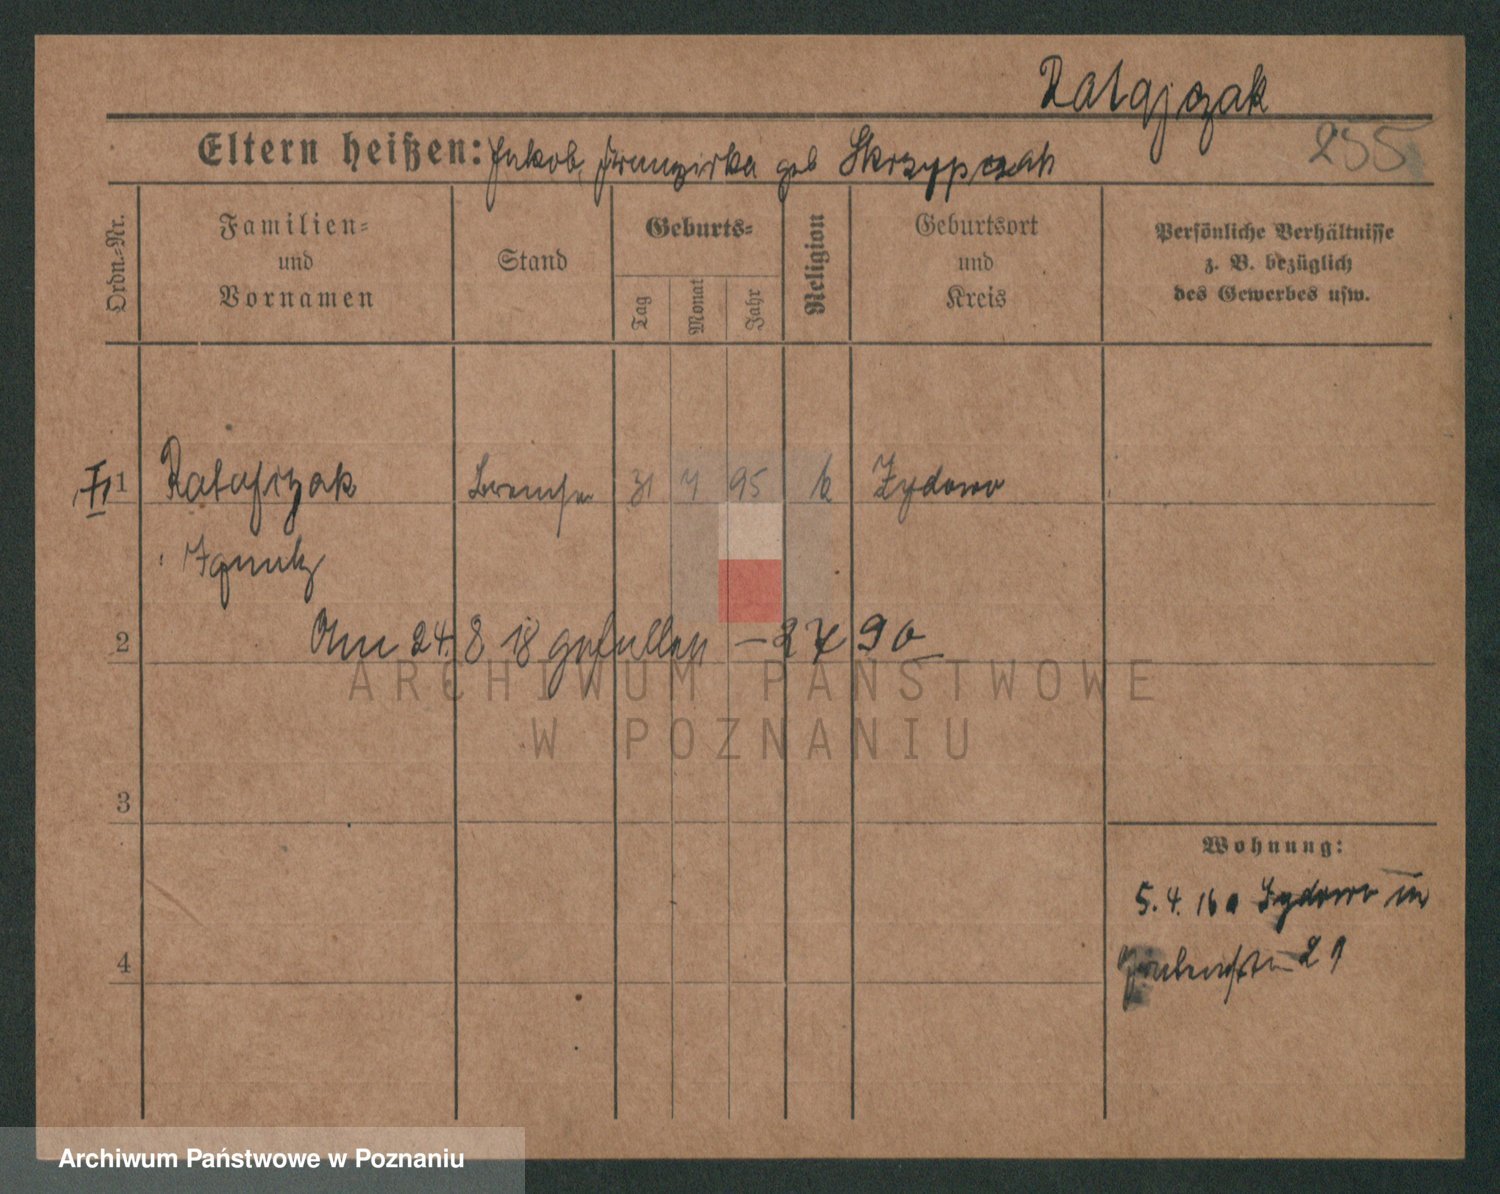 Ratajczak
255
Eltern heißen: Jakob, Franziska geb Skrzypczak
Ordn.-Nr.
Familien- und Vornamen
Stand
Geburts-
Tag
Monat
Jahr
Religion
Geburtsort und Kreis
Persönliche Verhältnisse z. B. bezüglich des Gewerbes usw.
1 Ratajczak 31 7 95 k Zydowo
Ignatz
2 Am 24. 8 18 gefallen
ARCHIWUM PAŃSTWOWE
W POZNANIU
3
Wohnung:
5. 4. 16 a Zydowo in
21
4
Archiwum Państwowe w Poznaniu